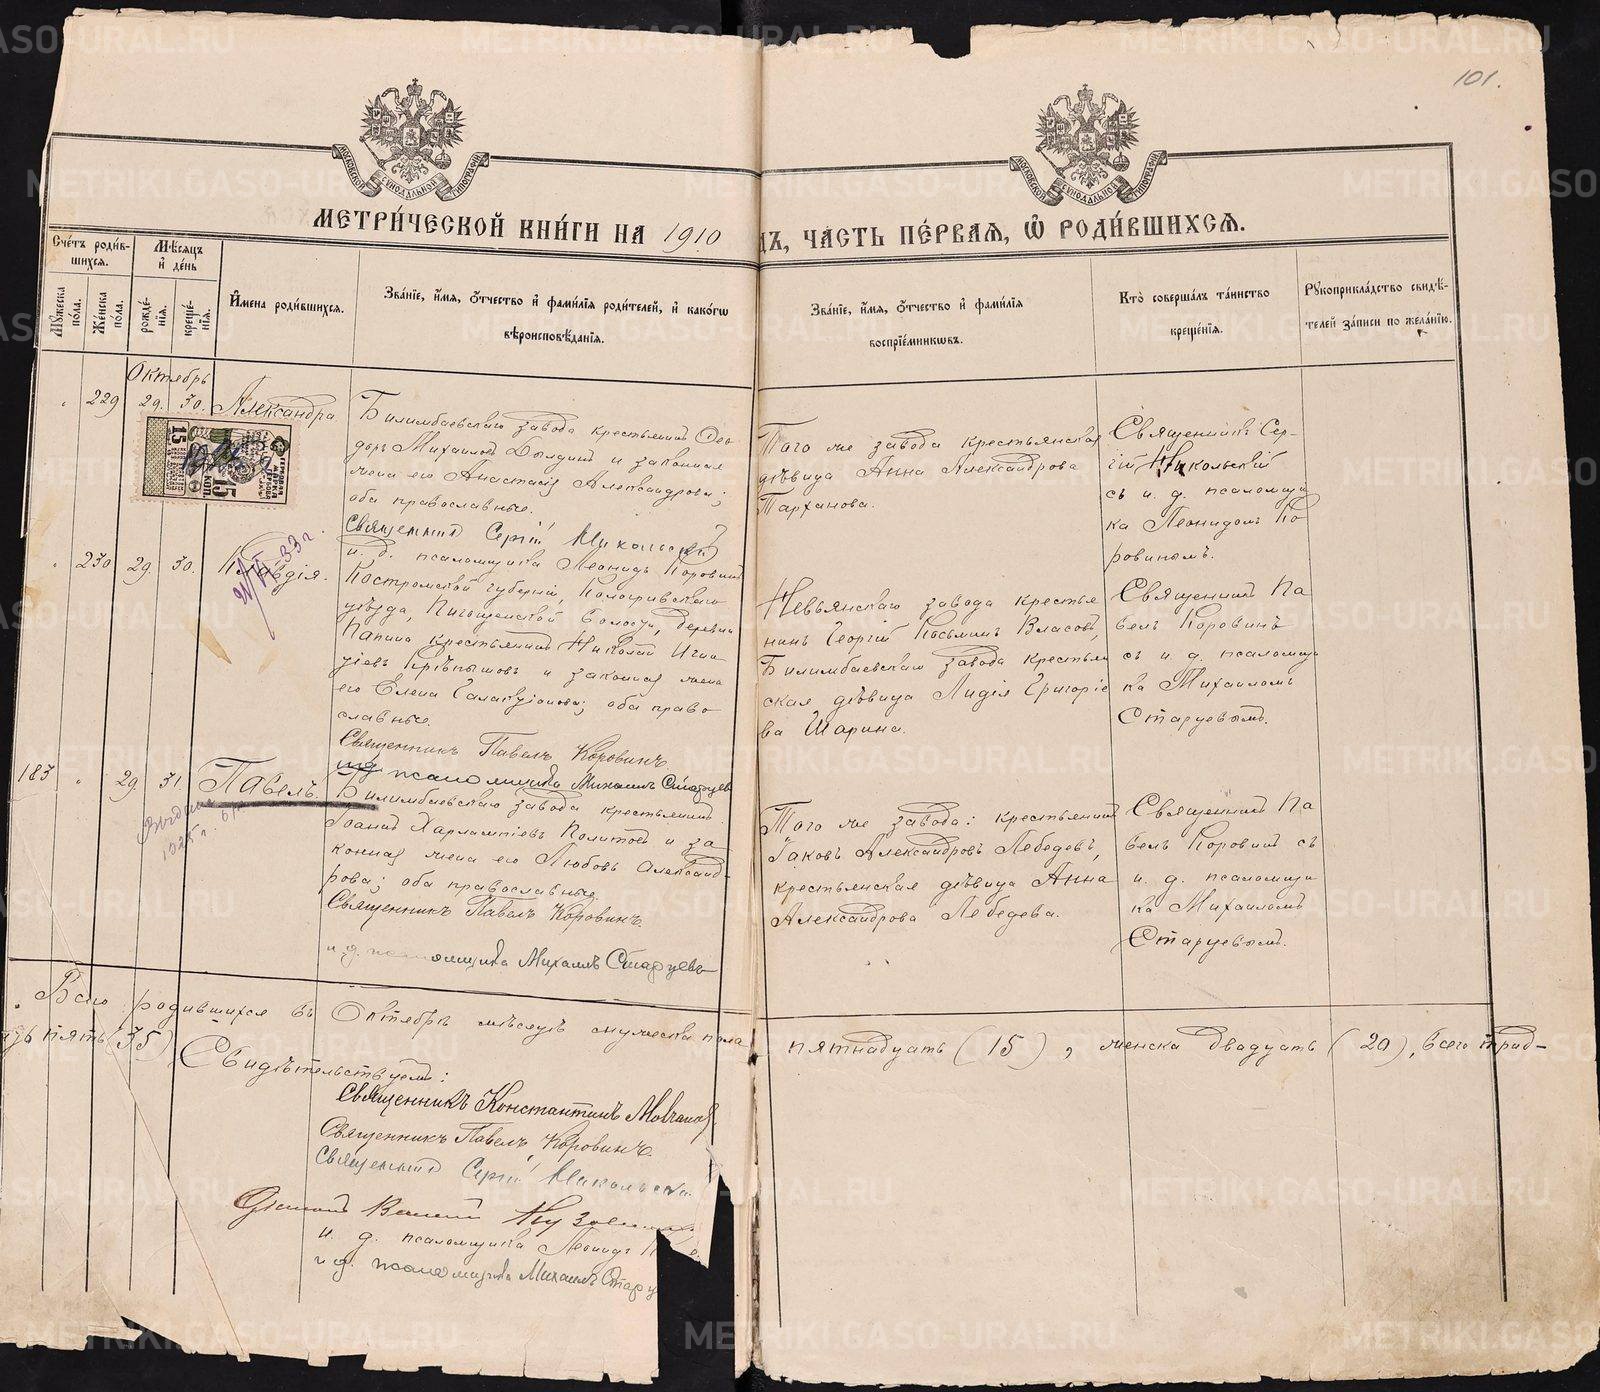 101.
МОСКОВСКОЙ СѴНОДАЛЬНОЙ ТИПОГРАФІИ
МОСКОВСКОЙ СѴНОДАЛЬНОЙ ТИПОГРАФІИ
МЕТРИ́ЧЕСКОЙ КНИ́ГИ НА 1910
ДЪ, ЧА́СТЬ ПЕ́РВАЯ, Ѽ РОДИ́ВШИХСЯ.
Сче́тъ роди́в-
шихся.
Мꙋ́жеска по́ла.
Же́нска по́ла.
Мѣ́сяцъ и де́нь
рожде́-
нїя.
креще́-
нїя.
И҆мена̀ роди́вшихся.
Зва́нїе, и҆́мя, ѻ҆́тчество и҆ фами́лїя роди́телей, и҆ како́гѡ
вѣроисповѣ́данїя.
Зва́нїе, и҆́мя, ѻ҆́тчество и҆ фами́лїя
воспрїе́мникѡвъ.
Кто̀ соверша́лъ та́инство
креще́нїя.
Рꙋкоприкла́дство свидѣ́-
телей за́писи по жела́нїю.
Октябрь
229 29. 30. Александра
Билимбаевскаго завода крестьянинъ Ѳео-
доръ Михаиловъ Болдинъ и законная
жена его Анастасія Александрова;
оба православные.
Священникъ Сергій Никольскій
и. д. псаломщика Леонидъ Коровинъ
Того же завода крестьянская
дѣвица Анна Александрова
Тарханова.
Священникъ Сер-
гій Никольскій
съ и. д. псаломщи
ка Леонидомъ Ко
ровинымъ.
15 КОП. 15
230 29. 30. Клавдія.
33 г.
Костромской губерніи, Кологривскаго
уѣзда, волости, деревни
Папина крестьянинъ Николай Игна
тіевъ и законная жена
его Елена Галактіонова; оба право
славные.
Священникъ Павелъ Коровинъ.
и.д. псаломщика Михаилъ Старцевъ
Невьянскаго завода крестья
нинъ Георгій Космъ Власовъ,
Билимбаевскаго завода крестьян
ская дѣвица Лидія Григоріе
ва Шарина.
Священникъ Па
велъ Коровинъ
съ и. д. псаломщи
ка Михаиломъ
Старцевымъ.
183 29 31. Павелъ.
1925 г.
Билимбаевскаго завода крестьянинъ
Іоаннъ Харлампіевъ и за
конная жена его Любовь Александ-
рова; оба православные.
Священникъ Павелъ Коровинъ.
и д. псаломщика Михаилъ Старцевъ
Того же завода: крестьянинъ
Іаковъ Александровъ Лебедевъ,
крестьянская дѣвица Анна
Александрова Лебедева.
Священникъ Па
велъ Коровинъ съ
и. д. псаломщи
ка Михаиломъ
Старцевымъ.
Всего родившихся въ Октябрѣ мѣсяцѣ мужеска пола
пятнадцать (15), женска двадцать (20), всего трид-
цать пять (35)
Свидѣтельствуемъ:
Священникъ Константинъ
Священникъ Павелъ Коровинъ.
Священникъ Сергій Никольскі
Діаконъ
и. д. псаломщика Леонидъ К
и д. псаломщика Михаилъ Старц
METRIKI.GASO-URAL.RU